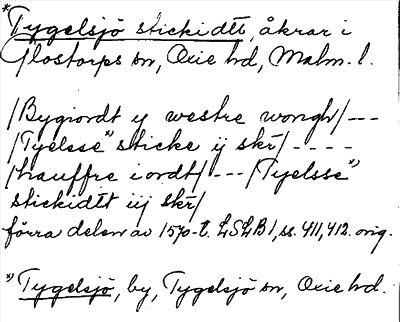 *Tygelsjö stickidtt, åkrar i
Glostorps sn, Oxie hd, Malm. l.
/Bygiordt y westre wongh/---
/Tyelsse" sticke ij skr/----
/hauffre i ordt/---/Tyelsse"
stickidtt iij skr/
förra delen av 1570-t. LSLB 1, ss. 411, 412. orig.
") Tygelsjö, by, Tygelsjö sn, Oxie hd.